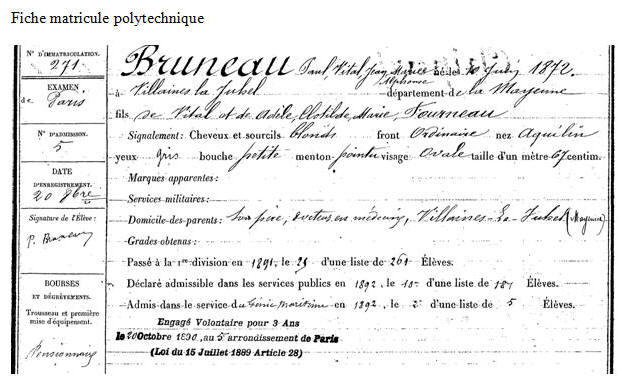 Fiche matricule polytechnique
N° D'IMMATRICULATION.
271
EXAMEN
de Paris
N° D'ADMISSION.
5
DATE
D'ENREGISTREMENT.
20 9bre
Signature de l'Élève :
P. Bruneau
BOURSES
ET DÉGRÈVEMENTS.
Trousseau et première
mise d'équipement.
Pensionnaire
BRUNEAU Paul, Vital, Jean, Marie né le 10 1872.
Alphonse
à Villaines la Juhel département de la Mayenne
fils de Vital et de Adèle, Clotilde, Marie, Fourneau
Signalement: Cheveux et sourcils blonds front Ordinaire nez Aquilin
yeux gris bouche petite menton pointu visage Ovale taille d'un mètre 67 centim.
Marques apparentes :
Services militaires :
Domicile des parents : Son père, docteur en médecine, Villaines-la-Juhel (Mayenne)
Grades obtenus :
Passé à la 1re division en 1891, le 25 d'une liste de 261 Élèves.
Déclaré admissible dans les services publics en 1892, le d'une liste de Élèves.
Admis dans le service du Génie maritime en 1892, le d'une liste de 5 Élèves.
Engagé Volontaire pour 3 Ans
le 20 Octobre 1890, au 5 arrondissement de Paris
(Loi du 15 Juillet 1889 Article 28)